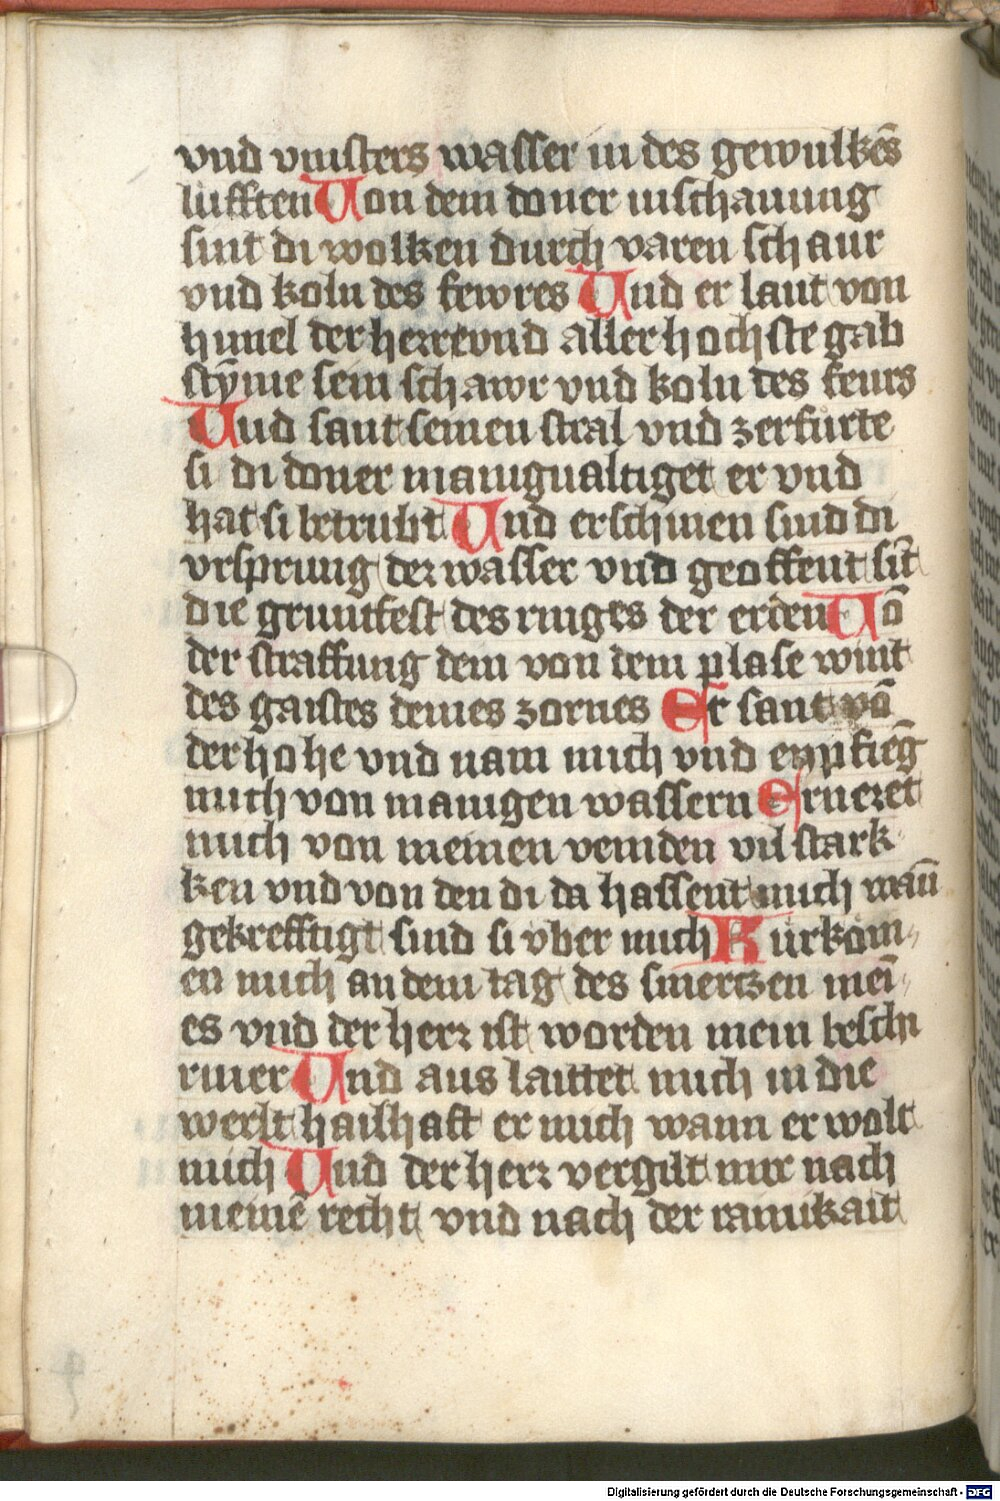 vnd vinsters wasser in des gewulkēs
lufften Von dem doner inschauung
sint di wolken durch varen schaur
vnd koln des fewres Vnd er laut von
himel der herre vnd aller hochste gab
stȳme sein schawr vnd koln des feurs
Vnd sant seinen stral vnd zerfurte
si di doner manigualtiget er vnd
hat si betrubt Vnd erschinen sind di
vrsprung der wasser vnd geoffent sīt
die gruntfest des ringes der erden Vō
der straffung dein von dem plase wint
des gaistes deines zornes Er sant vō
der hohe vnd nam mich vnd enpfieg
mich von manigen wassern Erneret
mich von meinen veinden vil stark
ken vnd von den di da hassent mich wañ
gekrefftigt sind si vber mich Kurkōm-
en mich an dem tag des smertzen meī-
es vnd der herr ist worden mein beschi
rmer Vnd aus laittet mich in die
werlt hailhaft er mich wann er wolt
mich Vnd der herr vergilt mir nach
meinē recht vnd nach der rainikait
Digitalisierung gefördert durch die Deutsche Forschungsgemeinschaft - DFG